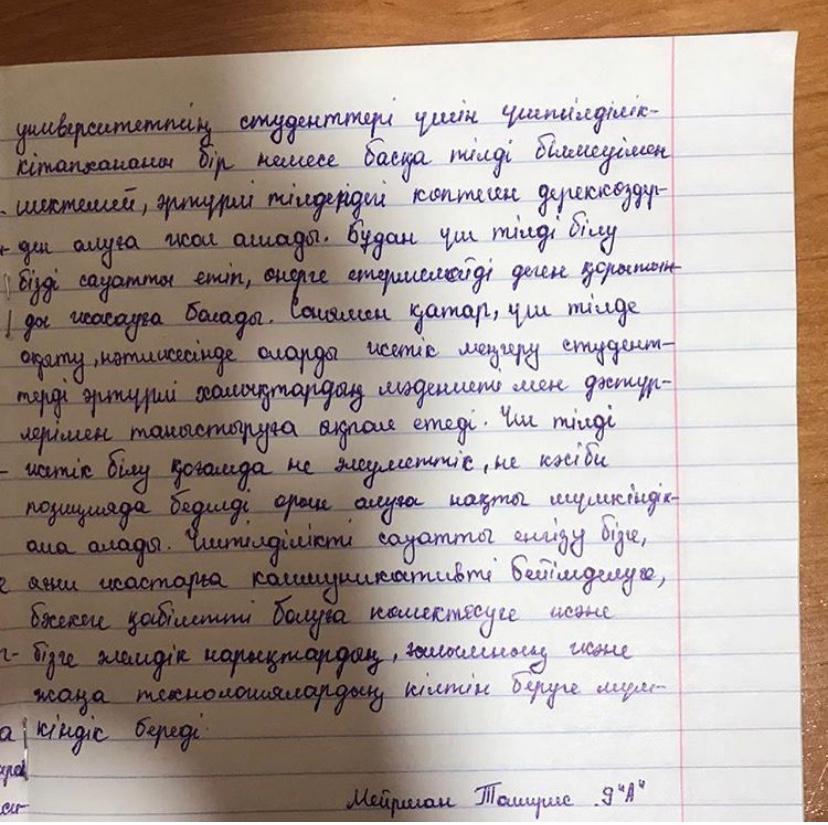 университеттің студенттері үшін үштілділік-
кітапхананы бір немесе басқа тілді білмеуімен
шектемей, әртүрлі тілдердегі көптеген дереккөздер-
ден алуға жол ашады. Бұдан үш тілді білу
бізді сауатты етіп, өнерге жетермелейді деген қорытын-
ды жасауға болады. Сонымен қатар, үш тілде
оқыту, нәтижесінде оларды жетік меңгеру студент-
терді әртүрлі халықтардың мәдениеті мен дәстүр-
лерімен таныстыруға ықпал етеді. Үш тілді
жетік білу қоғамда не әлуметтік, не кәсіби
позицияда беделді орын алуға нақты мүмкіндік-
ола алады. Үштілділікті сауатты енгізу бізге,
яғни жастарға коммуникативті бейімделуге,
бәсекеге қабілетті болуға көмектесуге және
бізге әлемдік нарықтардың, ғылымның және
жаңа технологиялардың кілтін беруге мүм-
кіндік береді
Мейрман Томирис 9"А"